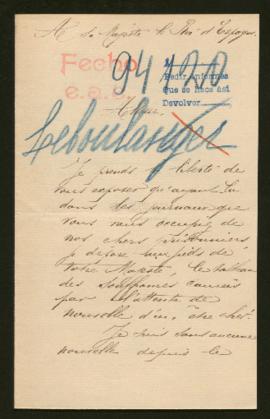 A Sa Majesté le Roi d'Espagne
Fecho
e.a.s.
94120
Pedir informes
que se hace así
Devolver
Leboulanger
Je prends la liberté de
vous exposer qu'ayant lu
dans les journaux que
vous vous occupez de
nos chers prisonniers
je dépose aux pieds de
Votre Majesté, le
des souffrances causées
par l'attente de
nouvelle d'un être cher.
Je suis sans aucune
nouvelle depuis le